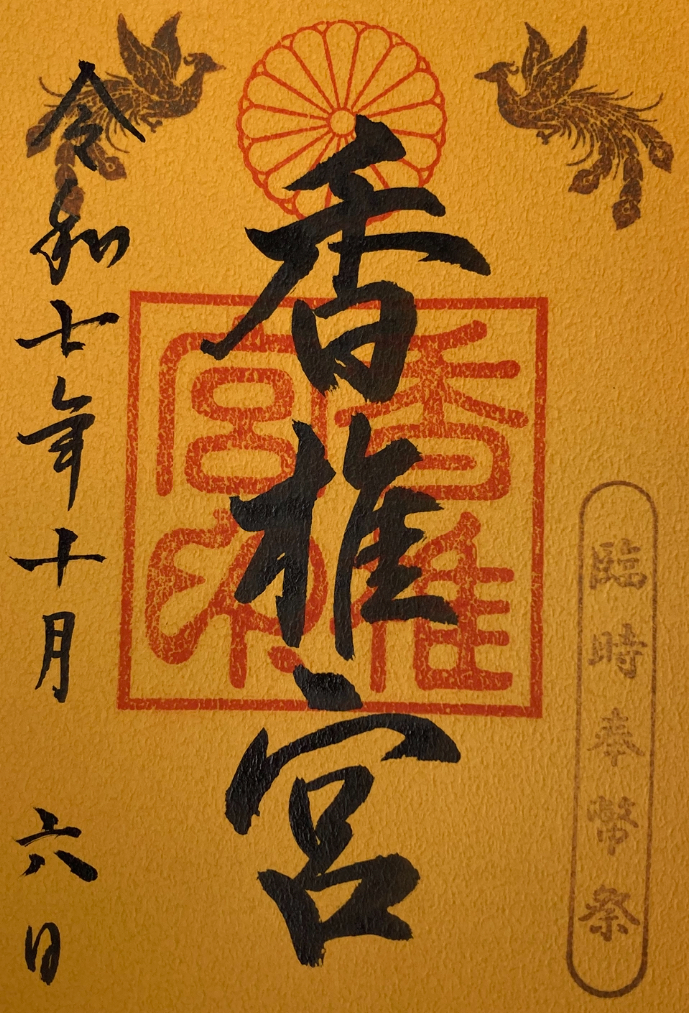 臨時奉幣祭
香椎宮
香椎宮印
令和七年十月六日